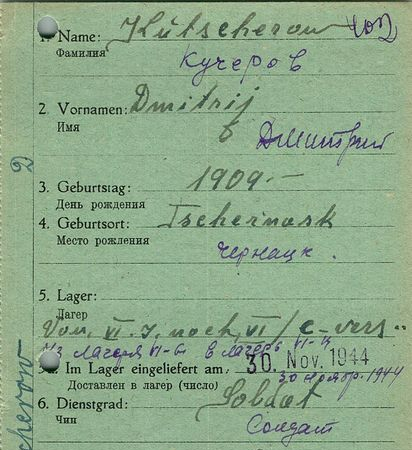 1. Name: Kutscherow
Фамилия
Кучеров
2. Vornamen: Dmitrij
Имя
Дмитрий
3. Geburtstag: 1909.–
День рождения
4. Geburtsort: Tschernask
Место рожления
Чернацк.
5. Lager:
Лагер
Von. VI. J. nach. VI / C - vers
Из лагеря VI- в лагерь VI-
5a. Im Lager eingeliefert am: 30. Nov. 1944
Доставлен в лагер (число) 30 ноябр. 1944
6. Dienstgrad: Soldat
Чин
Солдат
cherow